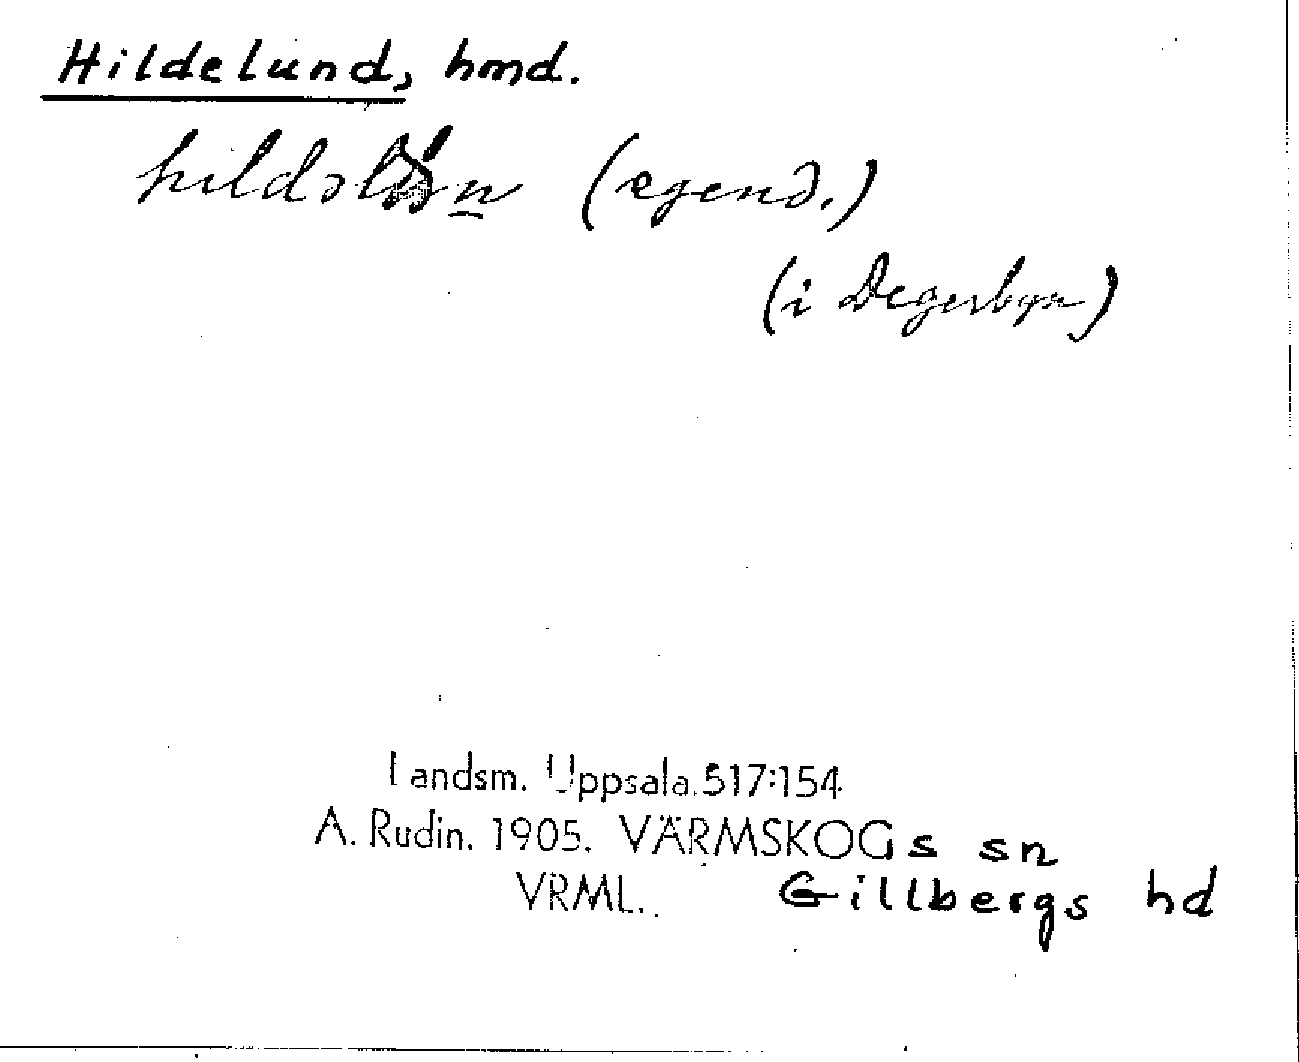 Hildelund, hmd.
(egend.)
(i Degerbyn)
Landsm. Uppsala.517:154
A. Rudin. 1905. VÄRMSKOGs sn
VRML. Gillbergs hd